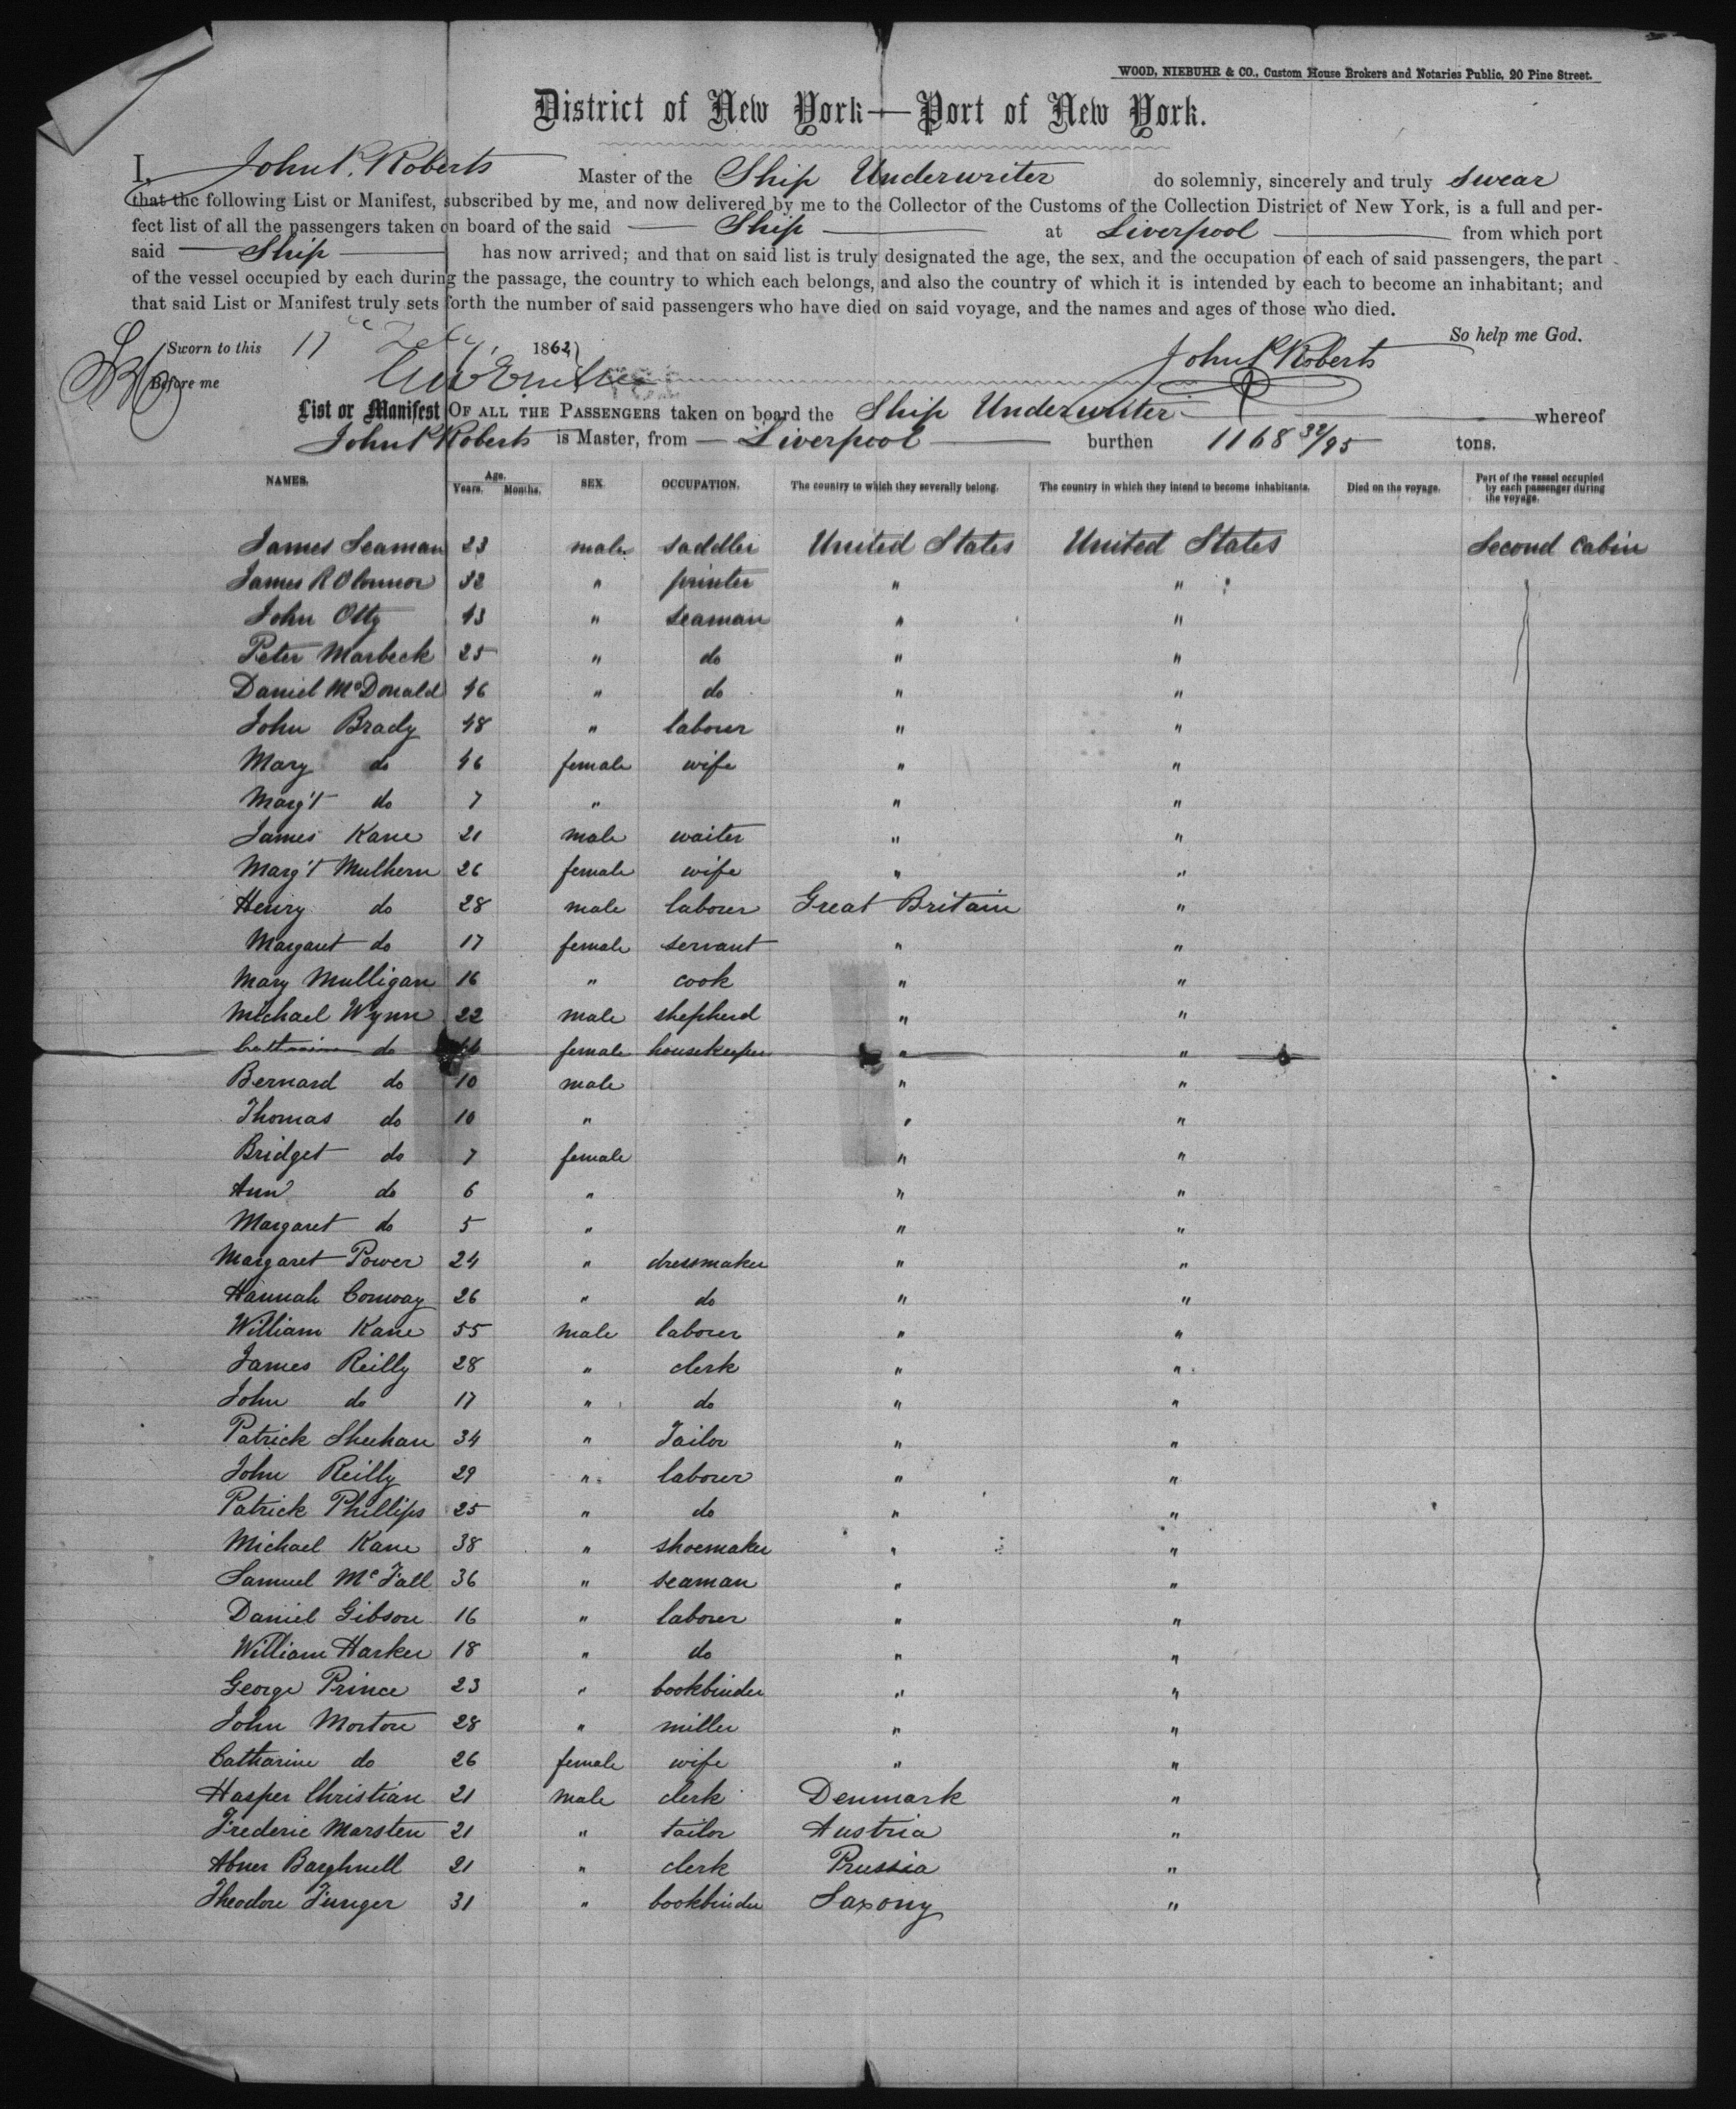 WOOD, NIEBUHR & CO., Custom House Brokers and Notaries Public, 20 Pine Street.
District of New York—Port of New York.
I, John P. Roberts Master of the Ship Underwriter do solemnly, sincerely and truly swear
that the following List or Manifest, subscribed by me, and now delivered by me to the Collector of the Customs of the Collection District of New York, is a full and per-
fect list of all the passengers taken on board of the said Ship at Liverpool from which port
said Ship has now arrived; and that on said list is truly designated the age, the sex, and the occupation of each of said passengers, the part
of the vessel occupied by each during the passage, the country to which each belongs, and also the country of which it is intended by each to become an inhabitant; and
that said List or Manifest truly sets forth the number of said passengers who have died on said voyage, and the names and ages of those who died.
So help me God.
Sworn to this 17 Feby, 1862
John P Roberts
Before me
List or Manifest OF ALL THE PASSENGERS taken on board the Ship Underwriter whereof
John P Roberts is Master, from Liverpool burthen 1168 32/95 tons.
NAMES. Age. Years. Months. SEX. OCCUPATION. The country to which they severally belong. The country in which they intend to become inhabitants. Died on the voyage. Part of the vessel occupied by each passenger during the voyage.
James Seaman 23 male saddler United States United States Second Cabin
James R O'Connor 32 " printer " "
John Otty 43 " seaman " "
Peter Marbeck 25 " do " "
Daniel McDonald 46 " do " "
John Brady 48 " laborer " "
Mary do 46 female wife " "
Marg't do 7 " " "
James Kane 21 male waiter " "
Marg't Mulhern 26 female wife " "
Henry do 28 male laborer Great Britain "
Margaret do 17 female servant " "
Mary Mulligan 16 " cook " "
Michael Wynn 22 male shepherd " "
do female housekeeper " "
Bernard do 10 male " "
Thomas do 10 " " "
Bridget do 7 female " "
Ann do 6 " " "
Margaret do 5 " " "
Margaret Power 24 " dressmaker " "
Hannah Conway 26 " do " "
William Kane 55 male laborer " "
James Reilly 28 " clerk " "
John do 17 " do " "
Patrick Sheehan 34 " Tailor " "
John Reilly 29 " laborer " "
Patrick Phillips 25 " do " "
Michael Kane 38 " shoemaker " "
Samuel McFall 36 " seaman " "
Daniel Gibson 16 " laborer " "
William Harker 18 " do " "
George Prince 23 " bookbinder " "
John Morton 28 " miller " "
Catharine do 26 female wife " "
Hasper Christian 21 male clerk Denmark "
Frederic Marsten 21 " tailor Austria "
Abner Barghnell 21 " clerk Prussia "
Theodore Funger 31 " bookbinder Saxony "